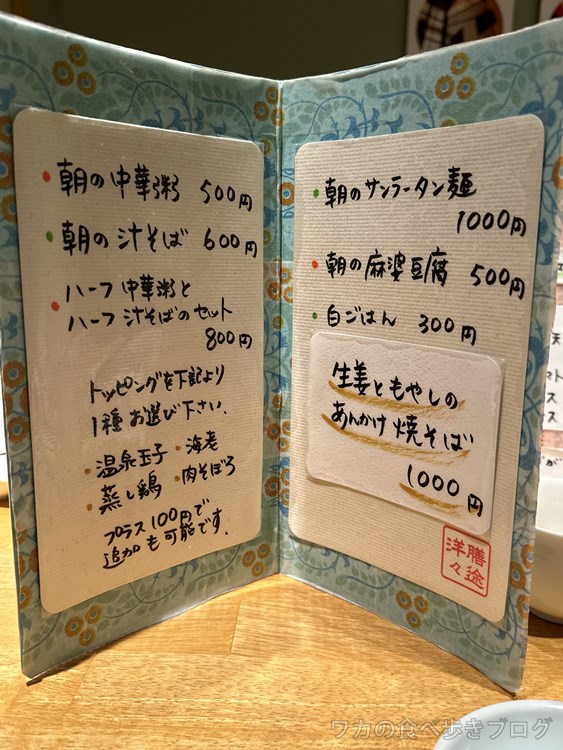 朝の中華粥 500円
朝の汁そば 600円
ハーフ中華粥と
ハーフ汁そばのセット
800円
トッピングを下記より
1種お選び下さい.
温泉玉子 海老
蒸し鶏 肉そぼろ
プラス100円で
追加も可能です.
朝のサンラータン麺
1000円
朝の麻婆豆腐 500円
白ごはん 300円
生姜ともやしの
あんかけ焼そば
1000円
膳途
洋々
ワカの食べ歩きブログ